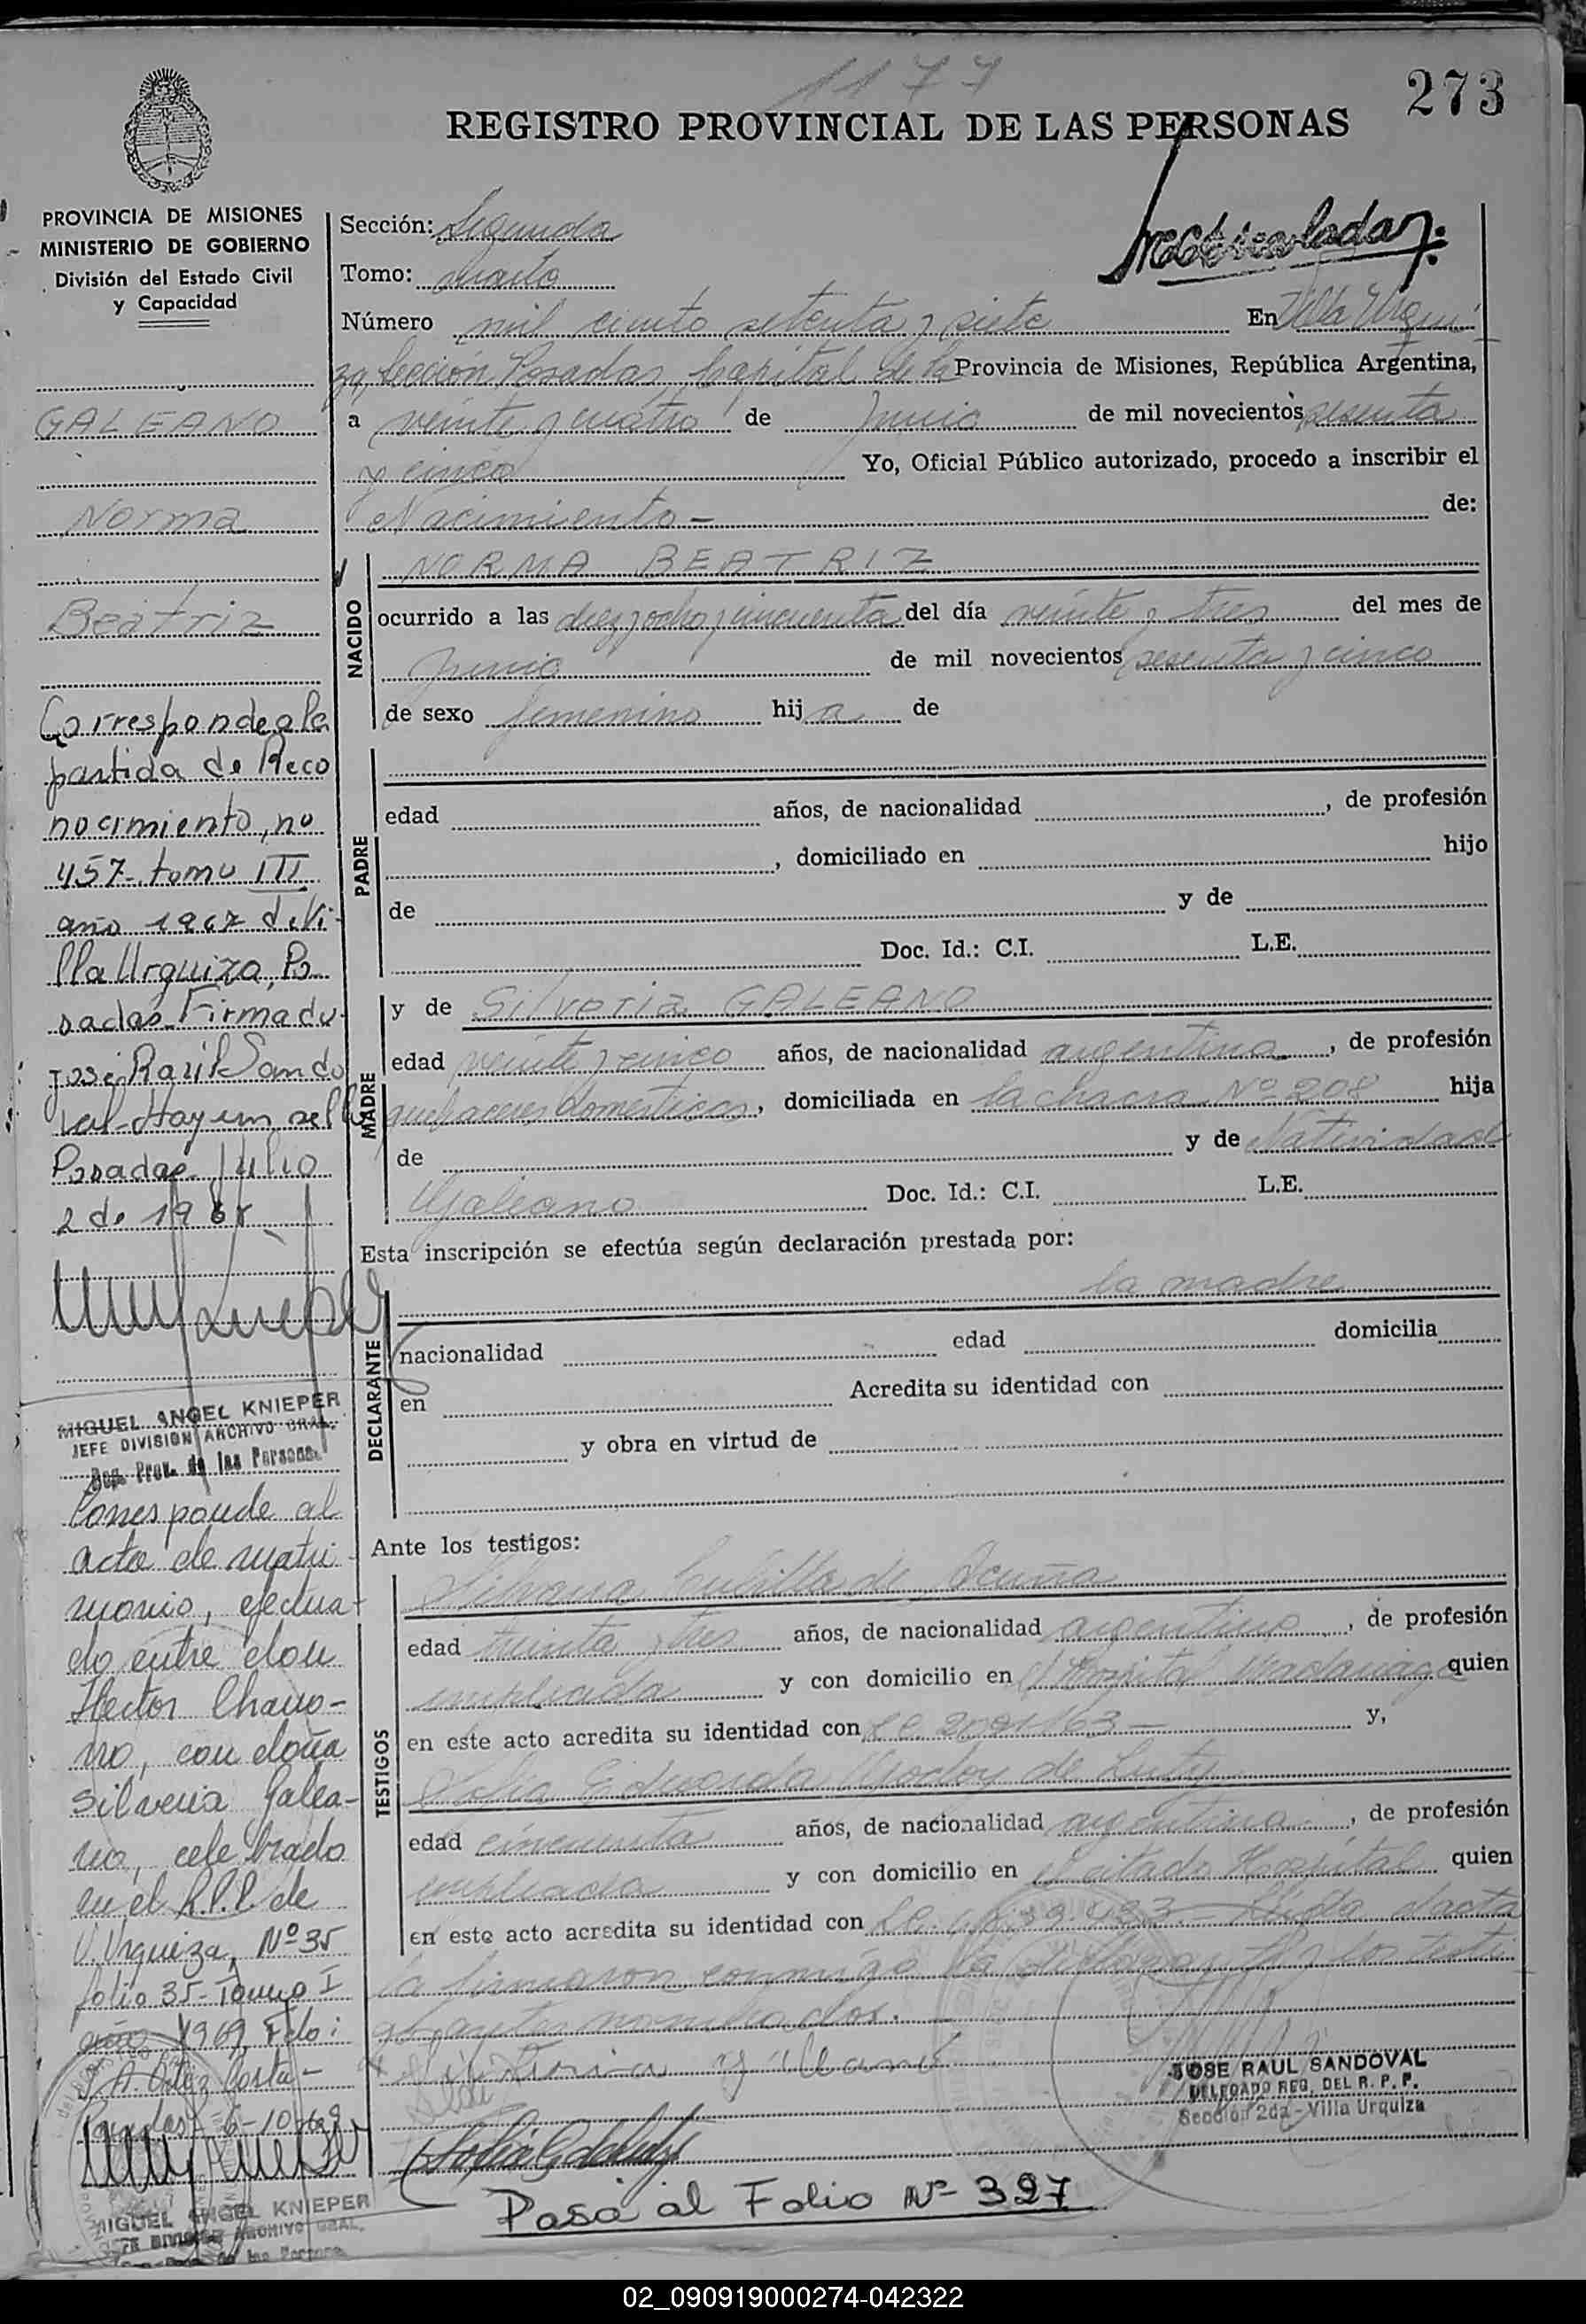 1177
273
REGISTRO PROVINCIAL DE LAS PERSONAS
PROVINCIA DE MISIONES
MINISTERIO DE GOBIERNO
División del Estado Civil
y Capacidad
GALEANO
Norma
Beatriz
Corresponde a la
partida de Reco
nocimiento, no
457- tomo III
año 1967 de Vi-
lla Urquiza, Po
sadas- Firmado-
José Raúl Sando
val- Hay un sello
Posadas Julio
2 de 1968
MIGUEL ANGEL KNIEPER
JEFE DIVISION ARCHIVO GRAL.
Reg. Prov. de las Personas
Corresponde al
acta de matri-
monio, efectua-
do entre don
Hector Chamo-
rro, con doña
Silveria Galea-
no, celebrado
en el R.P.P. de
V. Urquiza, Nº 35
folio 35- Tomo I
año 1969, Fdo:
Posadas, 6-10-69
MIGUEL ANGEL KNIEPER
JEFE DIVISION ARCHIVO GRAL.
Reg. Prov. de las Persona
Sección: Segunda
Tomo: cuarto
Número mil ciento setenta y siete En Villa Urqui
za, Sección Posadas, Capital de la Provincia de Misiones, República Argentina,
a veinte y cuatro de Junio de mil novecientos sesenta
y cinco Yo, Oficial Público autorizado, procedo a inscribir el
Nacimiento- de:
NACIDO
NORMA BEATRIZ
ocurrido a las diez y ocho y cincuenta del día veinte y tres del mes de
Junio de mil novecientos sesenta y cinco
de sexo femenino hija de
PADRE
edad años, de nacionalidad , de profesión
, domiciliado en hijo
de y de
Doc. Id.: C.I. L.E.
MADRE
y de Silveria GALEANO
edad veinte y cinco años, de nacionalidad argentina , de profesión
quehaceres domésticos, domiciliada en la chacra Nº 208 hija
de y de Natividad
Galeano Doc. Id.: C.I. L.E.
Esta inscripción se efectúa según declaración prestada por:
la madre
DECLARANTE
nacionalidad edad domicilia
en Acredita su identidad con
y obra en virtud de
Ante los testigos:
TESTIGOS
Silvana Cubilla de Acuña
edad treinta y tres años, de nacionalidad argentina , de profesión
empleada y con domicilio en el Hospital Madariaga quien
en este acto acredita su identidad con y,
Sofia Eduarda Godoy de
edad cincuenta años, de nacionalidad argentina , de profesión
empleada y con domicilio en el citado Hospital quien
en este acto acredita su identidad con Leida el acta
la firmaron conmigo la y los testi
gos antes nombrados.
JOSE RAUL SANDOVAL
DELEGADO REG. DEL R. P. P.
Sección 2da - Villa Urquiza
Pasa al Folio Nº 327
02_090919000274-042322